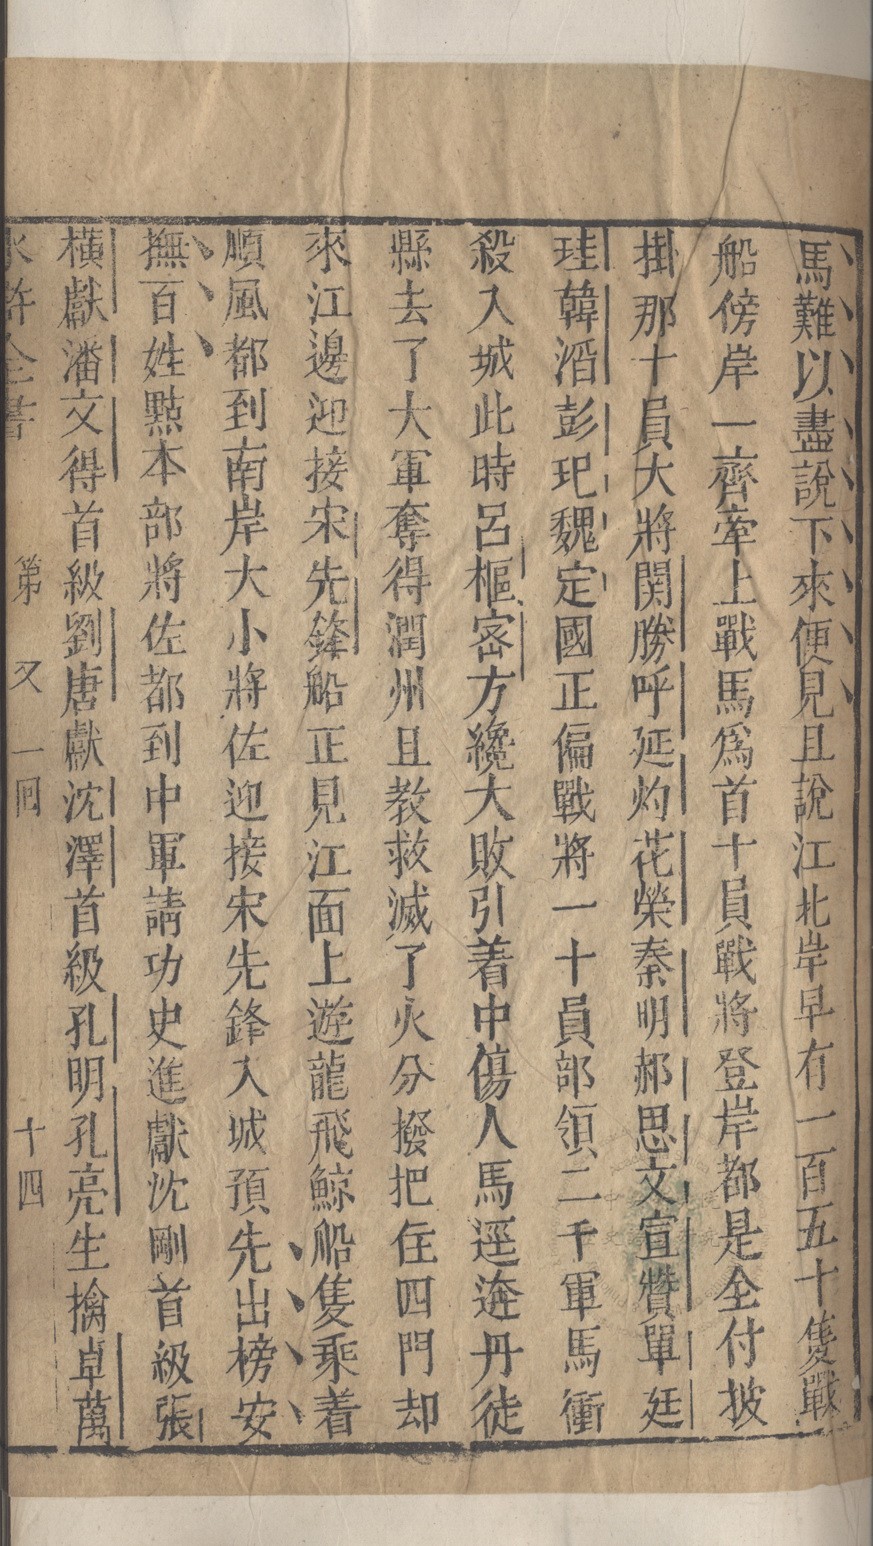 馬難以盡說下來便見且說江北岸早有一百五十隻戰
船傍岸一齊牽上戰馬爲首十員戰將登岸都是全付披
掛那十員大將関勝呼延灼花榮秦明郝思文宣贊單廷
珪韓滔彭玘魏定國正偏戰將一十員部領二千軍馬衝
殺入城此時呂樞密方纔大敗引着中傷人馬逕遊丹徒
縣去了大軍奪得潤州且教救滅了火分撥把住四門却
來江邊迎接宋先鋒船正見江面上遊龍飛鯨船隻乘着
順風都到南岸大小將佐迎接宋先鋒入城預先出榜安
撫百姓點本部將佐都到中軍請功史進獻沈剛首級張
橫獻潘文得首級劉唐獻沈澤首級孔明孔亮生擒卓萬
水滸全書 第 又 一回 十四